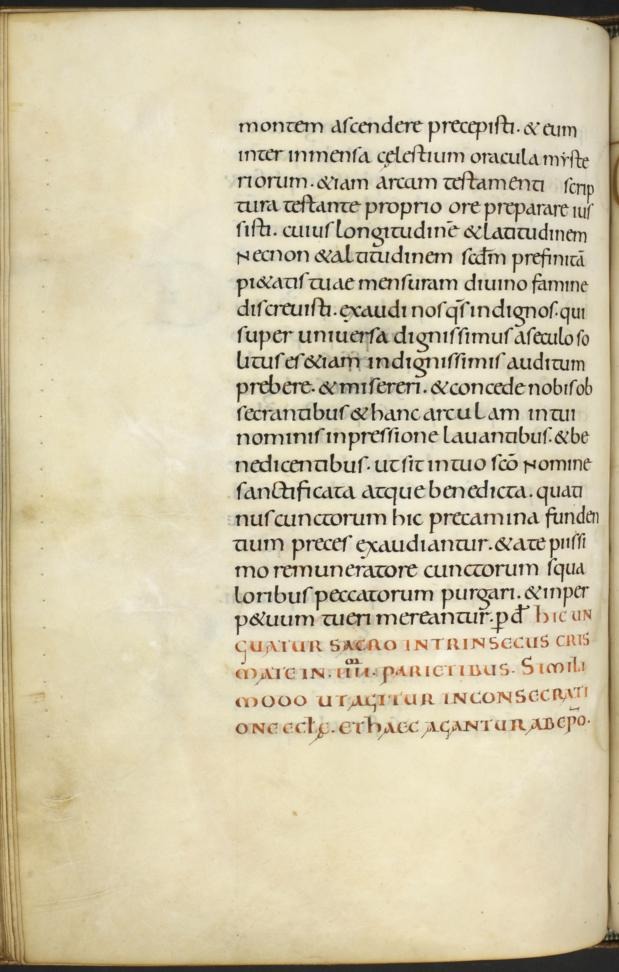 montem ascendere precepisti. & eum
inter inmensa cęlestium oracula myste
riorum. &iam arcam testamenti scrip
tura testante proprio ore preparare ius
sisti. cuius longitudinē & latitudinem
Necnon & altitudinem scđm prefinitā
pi&atis tuae mensuram diuino famine
discreuisti. exaudi nos qs̄ indignos. qui
super uniuersa dignissimus a seculo so
litus es &iam indignissimis auditum
prebere. & misereri. & concede nobis ob
secrantibus & hanc arculam in tui
nominis inpressione lauantibus. & be
nedicentibus. ut sit in tuo scō Nomine
sanctificata atque benedicta. quati
nus cunctorum hic precamina funden
tium preces exaudiantur. & a te piissi
mo remuneratore cunctorum squa
loribus peccatorum purgari. & inper
p&uum tueri mereantur. p̄ d̄ hic un
guatur sacro intrinsecus cris
mate in. iiii. parietibus. Simili
modo ut agitur in consecrati
one ecłę. et haec agantur ab ep̄o.